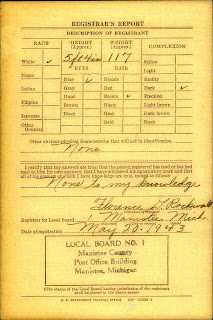 REGISTRAR'S REPORT
DESCRIPTION OF REGISTRANT
RACE HEIGHT (Approx.) WEIGHT (Approx.) COMPLEXION
5 ft 4 in 117
White ✓ Sallow
EYES HAIR Light
Negro Blue ✓ Blonde Ruddy
Indian Gray Red Dark ✓
Hazel Brown ✓ Freckled
Filipino Brown Black Light brown
Japanese Black Gray Dark brown
Other Oriental Bald Black
Other obvious physical characteristics that will aid in identification
None
I certify that my answers are true; that the person registered has read or has had
read to him his own answers; that I have witnessed his signature or mark and that
all of his answers of which I have knowledge are true, except as follows:
None to my knowledge
Florence
Registrar for Local Board 1 Manistee Mich.
Date of registration May 20 1943
LOCAL BOARD NO. 1
Manistee County
Post Office Building
Manistee, Michigan
(The stamp of the Local Board having jurisdiction of the registrant
shall be placed in the above space)
U. S. GOVERNMENT PRINTING OFFICE